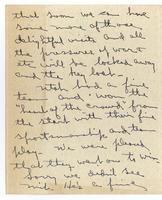 that soon we can have
some more of those
delightful visits and all
the pressures of work
etc will be locked away
and the key lost.
had a fine
team and won the
"heart of the crowd" from
the start with their fine
sportsmanship and team
play. We were pleased
that they were to win
Sorry we didn't see
He's a fine